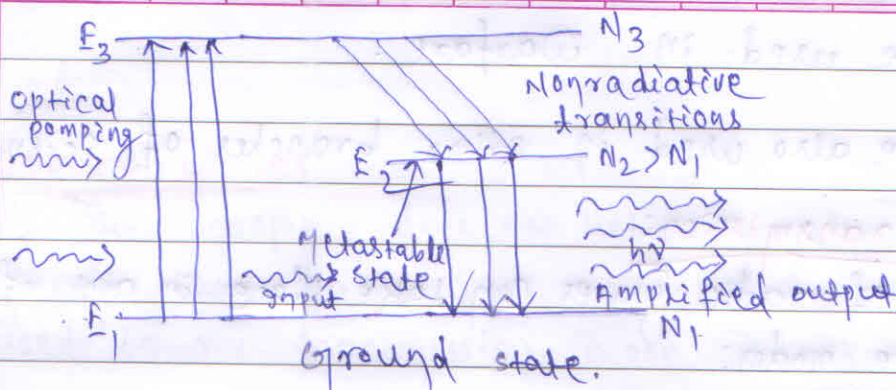 E3
N3
Optical
pomping
Nonradiative
transitions
E2
N2 > N1
Metastable
state
input
hν
Amplified output
E1
N1
Ground state.